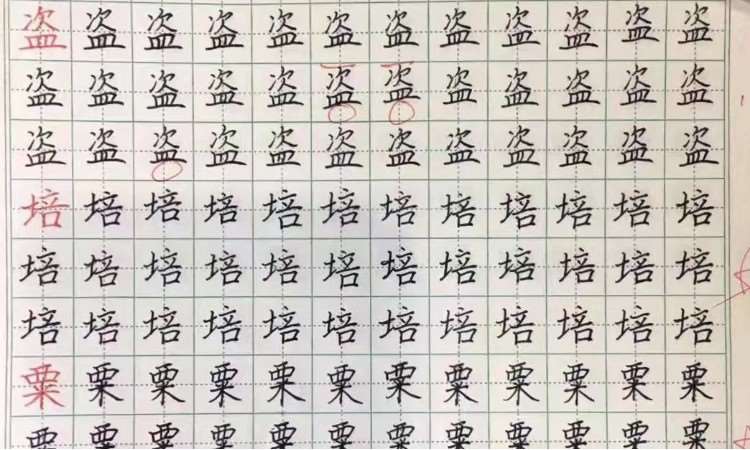 盗盗盗盗盗盗盗盗盗盗盗盗
盗盗盗盗盗盗盗盗盗盗盗盗
盗盗盗盗盗盗盗盗盗盗盗盗
培培培培培培培培培培培培
培培培培培培培培培培培培
培培培培培培培培培培培培
粟粟粟粟粟粟粟粟粟粟粟粟
粟粟粟粟粟粟粟粟粟粟粟粟